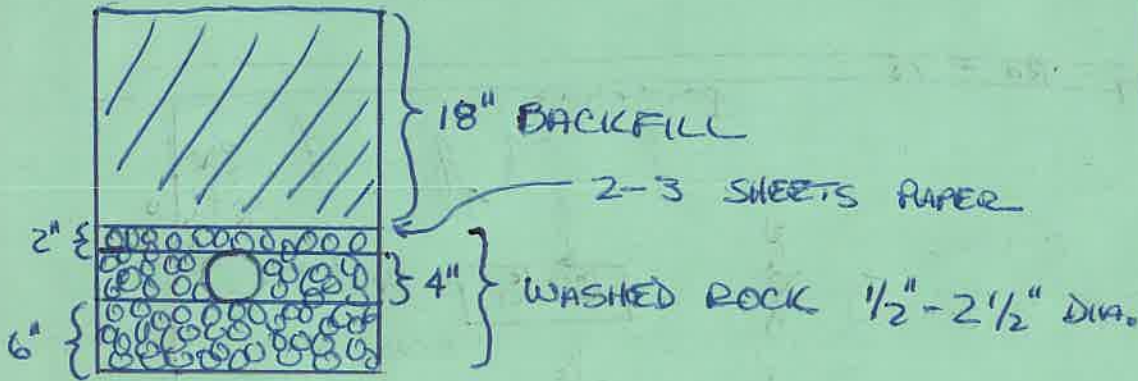 18" BACKFILL
2-3 SHEETS PAPER
2"
4"
WASHED ROCK 1/2" - 2 1/2" DIA.
6"